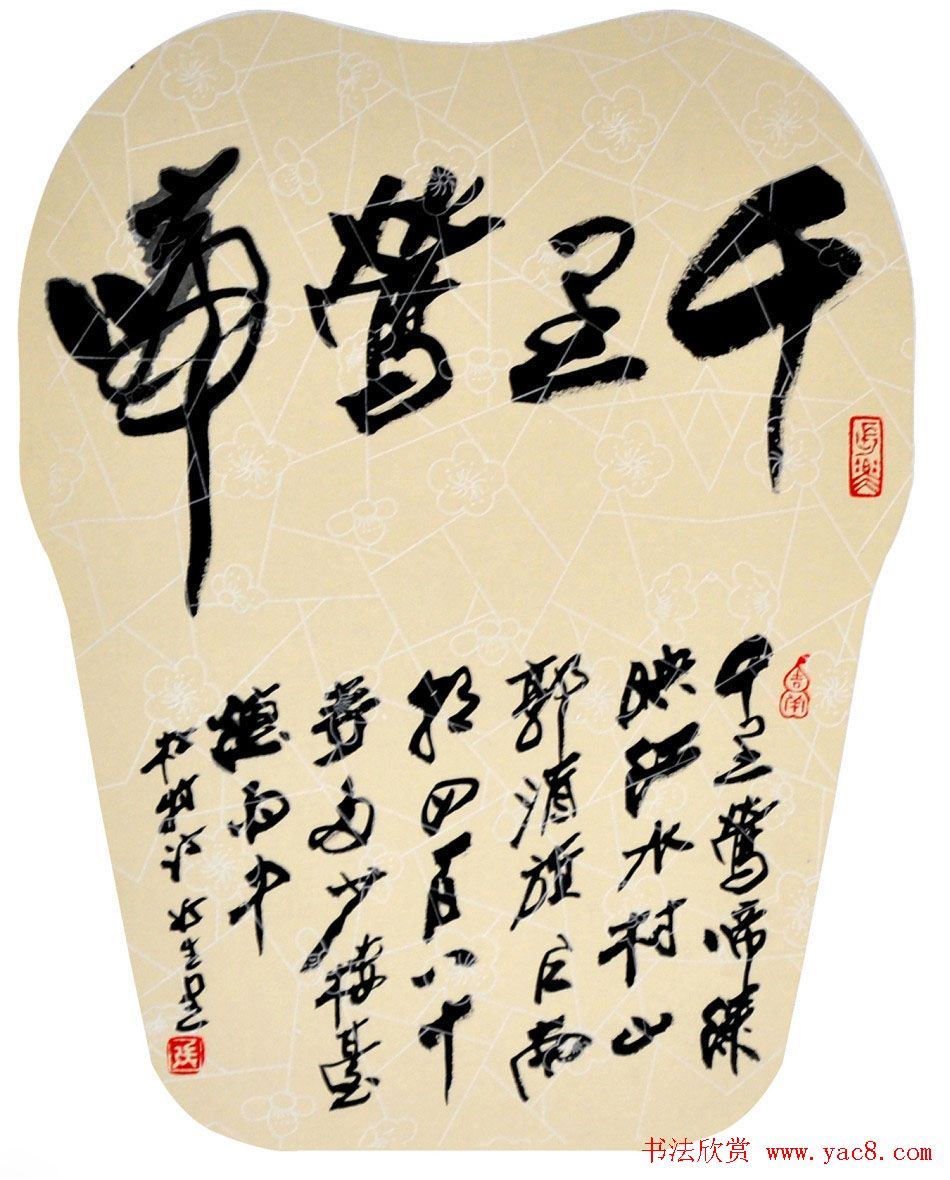 千里鶯啼
千里鶯啼綠
映红水村山
郭酒旗风南
朝四百八十
寺多少樓臺
煙雨中
杜牧诗
书法欣赏 www.yac8.com